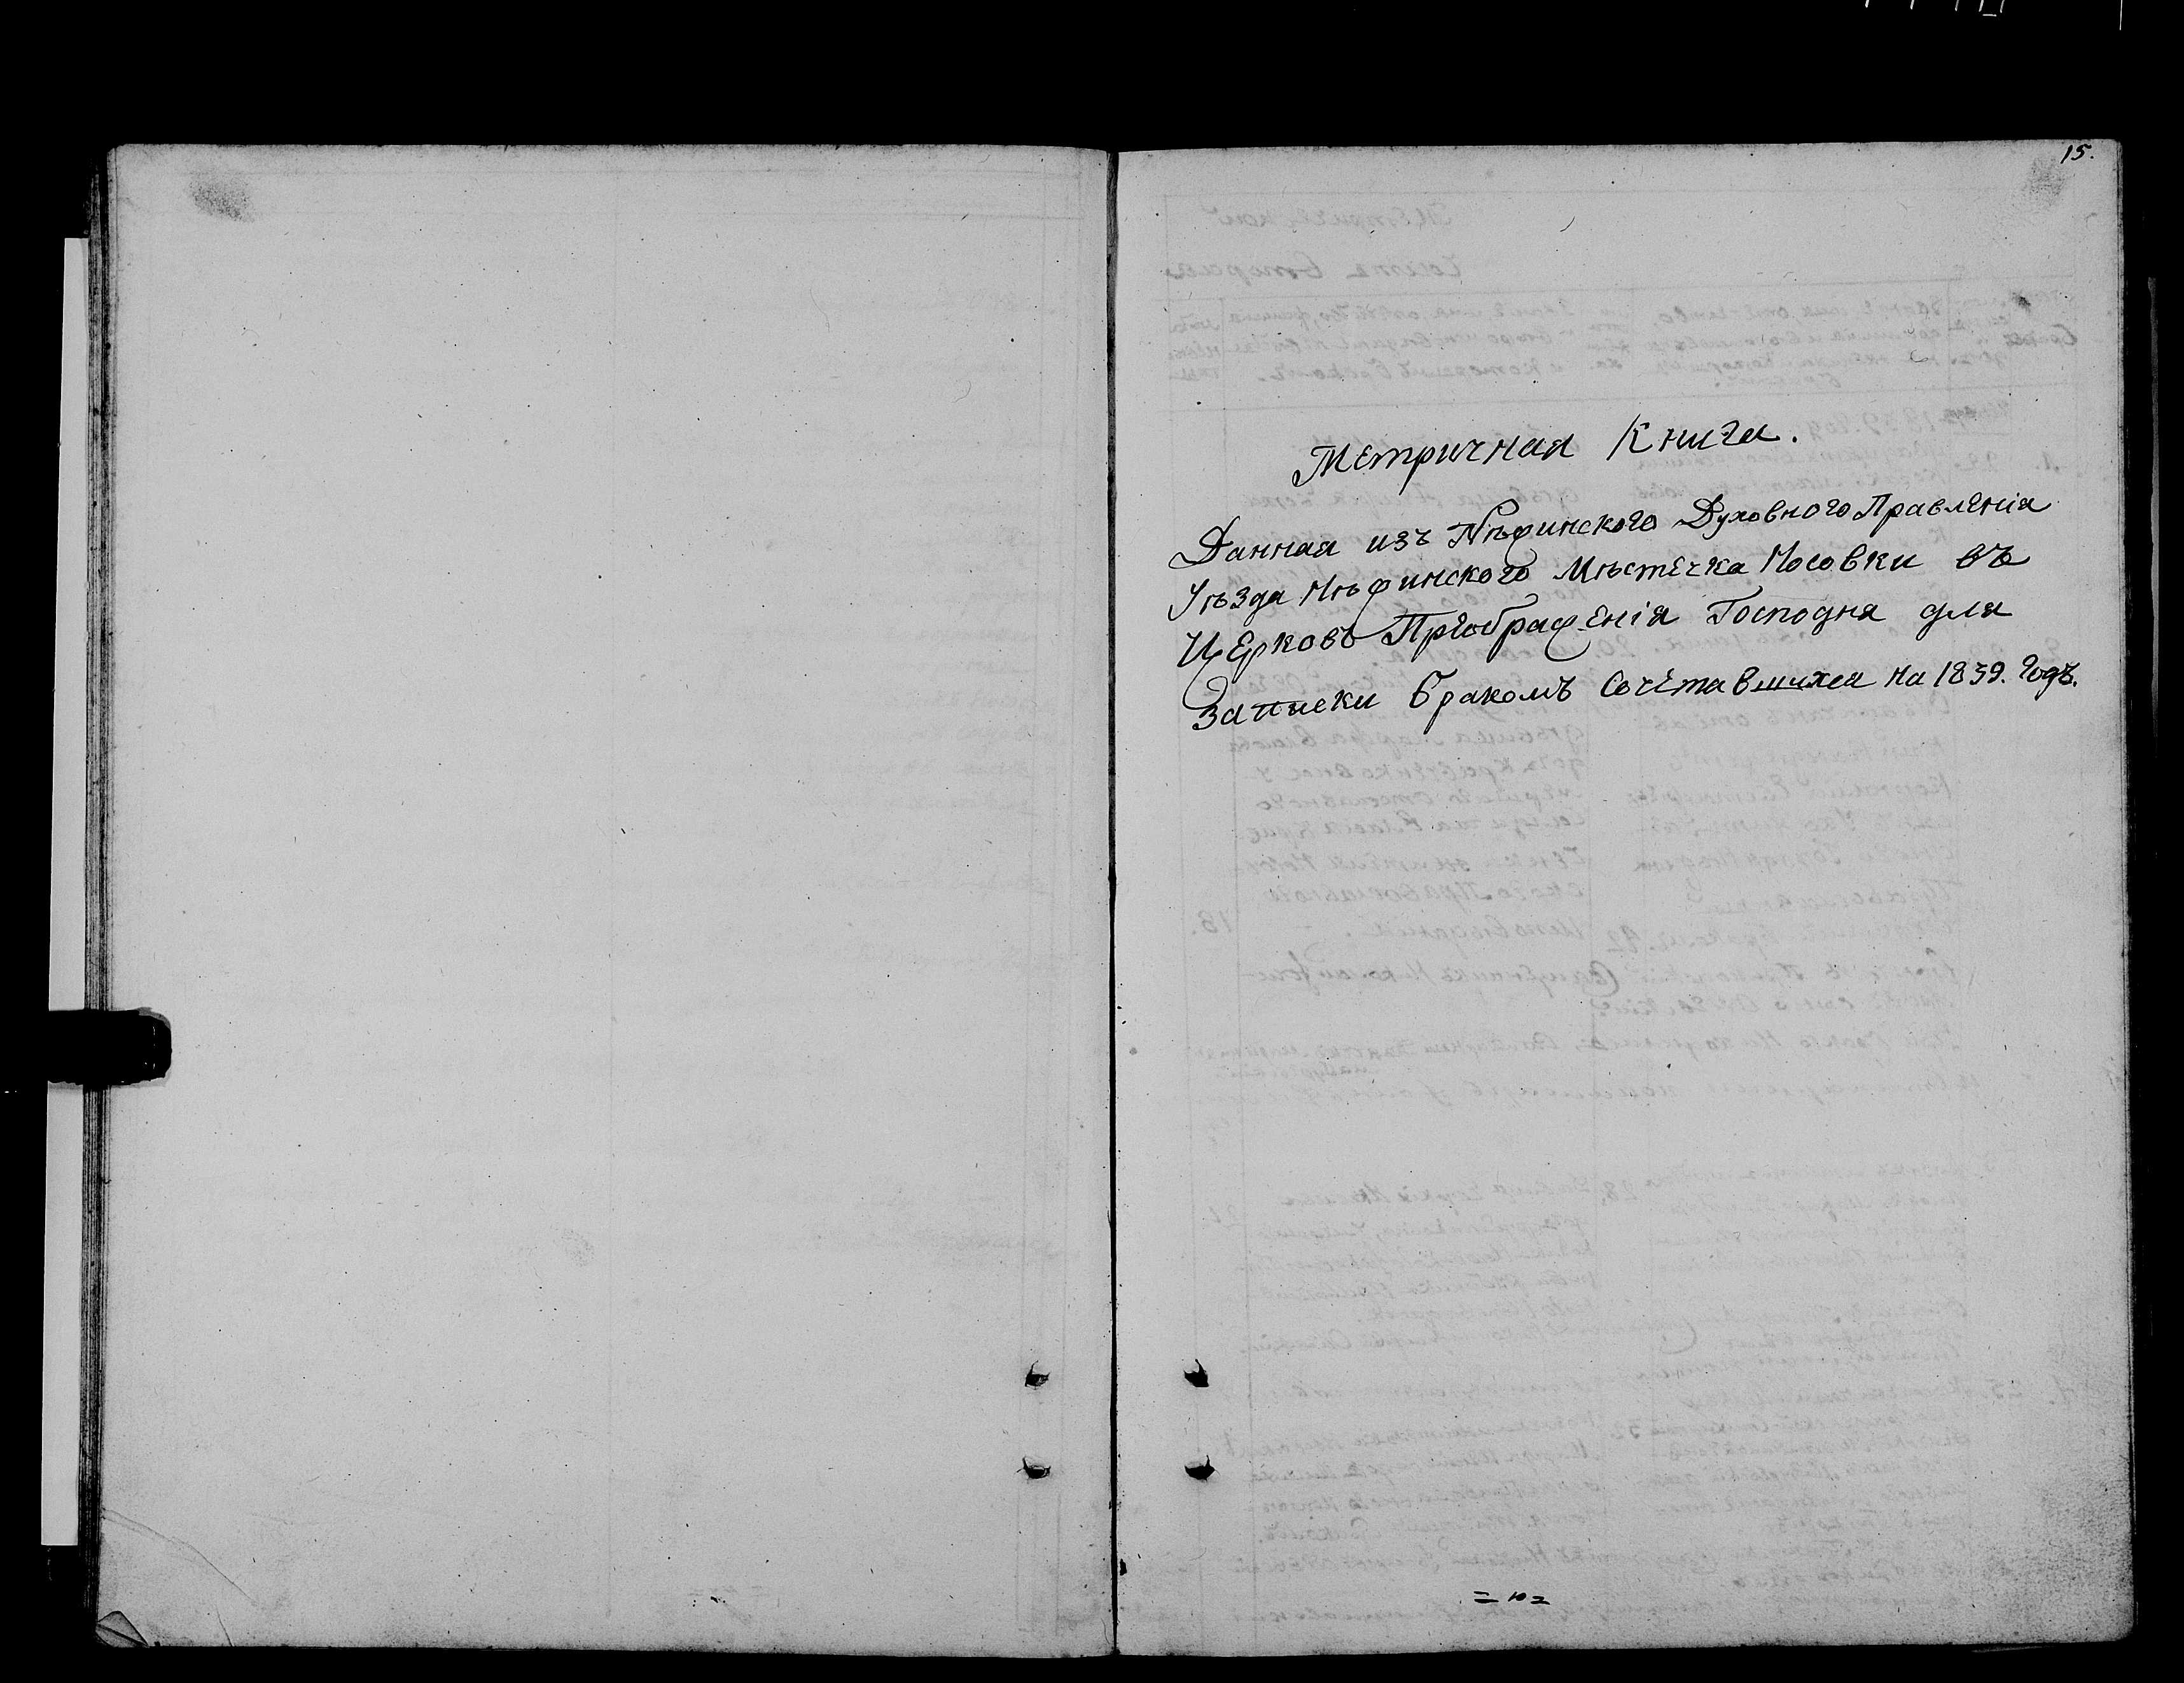 15.
Метричная Книга.
Данная изъ Нѣжинского Духовного Правленія
Уѣзда Нѣжинского Мѣстечка Носовки въ
Церковь Преображенія Господня для
Записки бракомъ Сочетавшихся на 1839. годъ.
= 10 =